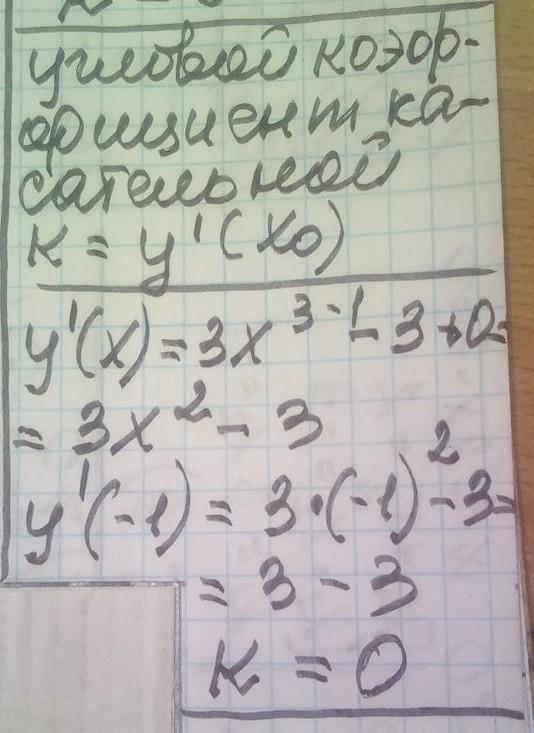 угловой коэф-
фициент ка-
сательной
К = y'(x₀)
y'(x) = 3x³⁻¹ - 3 + 0 =
= 3x² - 3
y'(-1) = 3·(-1)² - 3 =
= 3 - 3
К = 0